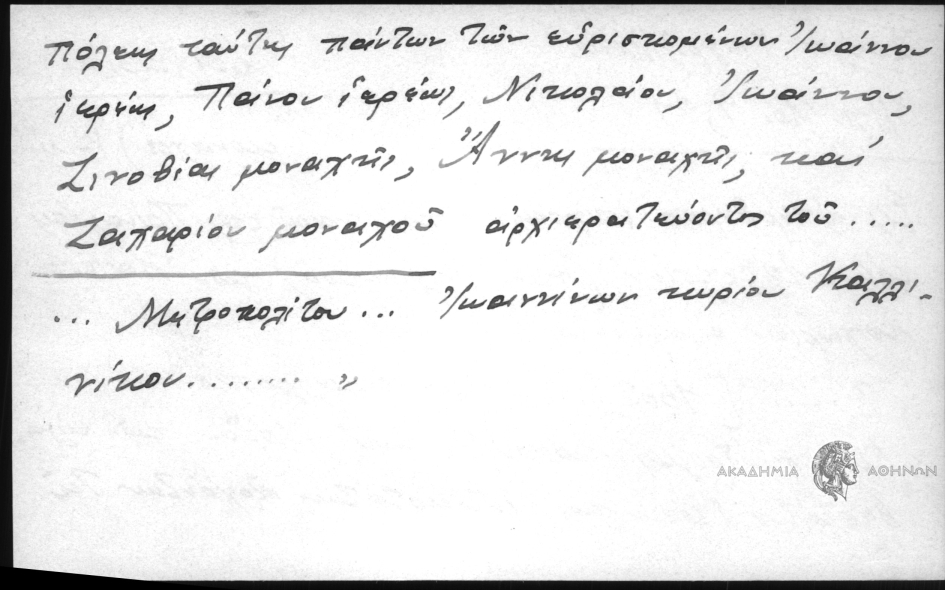 πόλεως ταύτης πάντων τῶν εὑρισκομένων Ἰωάννου
ἱερέως, Πάνου ἱερέως, Νικολάου, Ἰωάννου,
Ζινοβίας μοναχῆς, Ἄννης μοναχῆς, καὶ
Ζαχαρίου μοναχοῦ ἀρχιερατεύοντος τοῦ .....
... Μητροπολίτου ... Ἰωαννίνων κυρίου Καλλι-
νίκου ........ "
ΑΚΑΔΗΜΙΑ ΑΘΗΝΩΝ